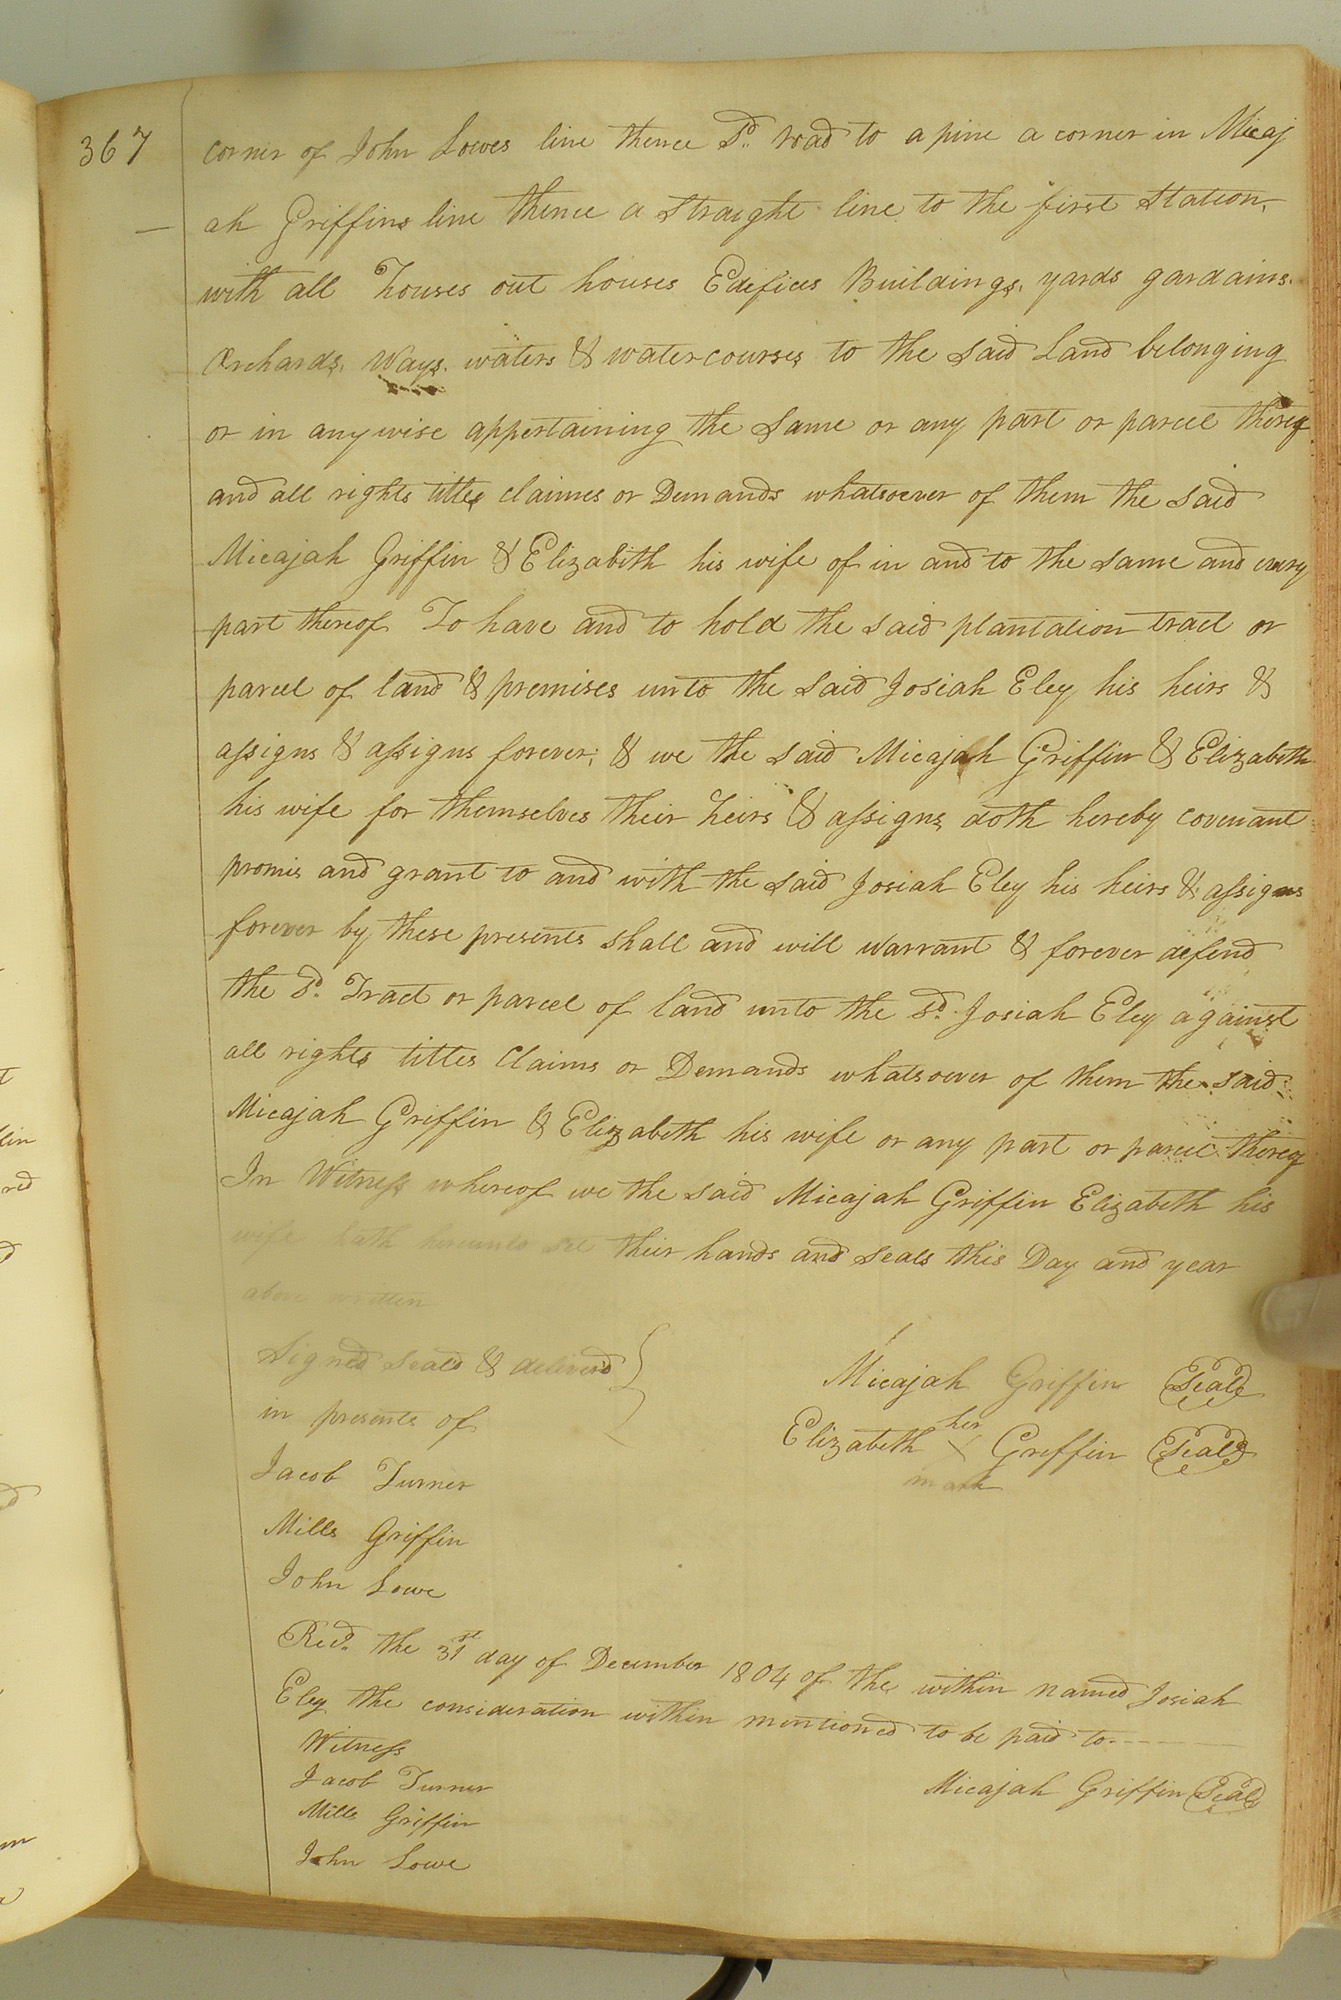 367
corner of John Lowes line thence Sd. road to a pine a corner in Micaj
ah Griffins line thence a straight line to the first Station,
with all houses out houses Edifices Buildings, yards gardains.
Orchards, Ways. waters & watercourses to the said Land belonging
or in anywise appertaining the Same or any part or parcel thereof
and all rights titles claimes or Demands whatsoever of them the said
Micajah Griffin & Elizabeth his wife of in and to the same and every
part thereof To have and to hold the said plantation tract or
parcel of land & premises unto the said Josiah Eley his heirs &
assigns & assigns forever; & we the said Micajah Griffin & Elizabeth
his wife for themselves their heirs & assigns doth hereby covenant
promis and grant to and with the said Josiah Eley his heirs & assigns
forever by these presents shall and will warrant & forever defend
the Sd. Tract or parcel of land unto the sd. Josiah Eley against
all rights titles Claims or Demands whatsoever of them the said
Micajah Griffin & Elizabeth his wife or any part or parcel thereof
In Witness whereof we the said Micajah Griffin Elizabeth his
wife hath hereunto set their hands and seals this Day and year
above written
Signed Seald & deliverd
in presents of
Micajah Griffin Seal
Elizabeth her X mark Griffin Seal
Jacob Turner
Mills Griffin
John Lowe
Recd. the 31st day of December 1804 of the within named Josiah
Eley the consideration within mentioned to be paid to
Witness
Jacob Turner
Micajah Griffin Seal
Mills Griffin
John Lowe